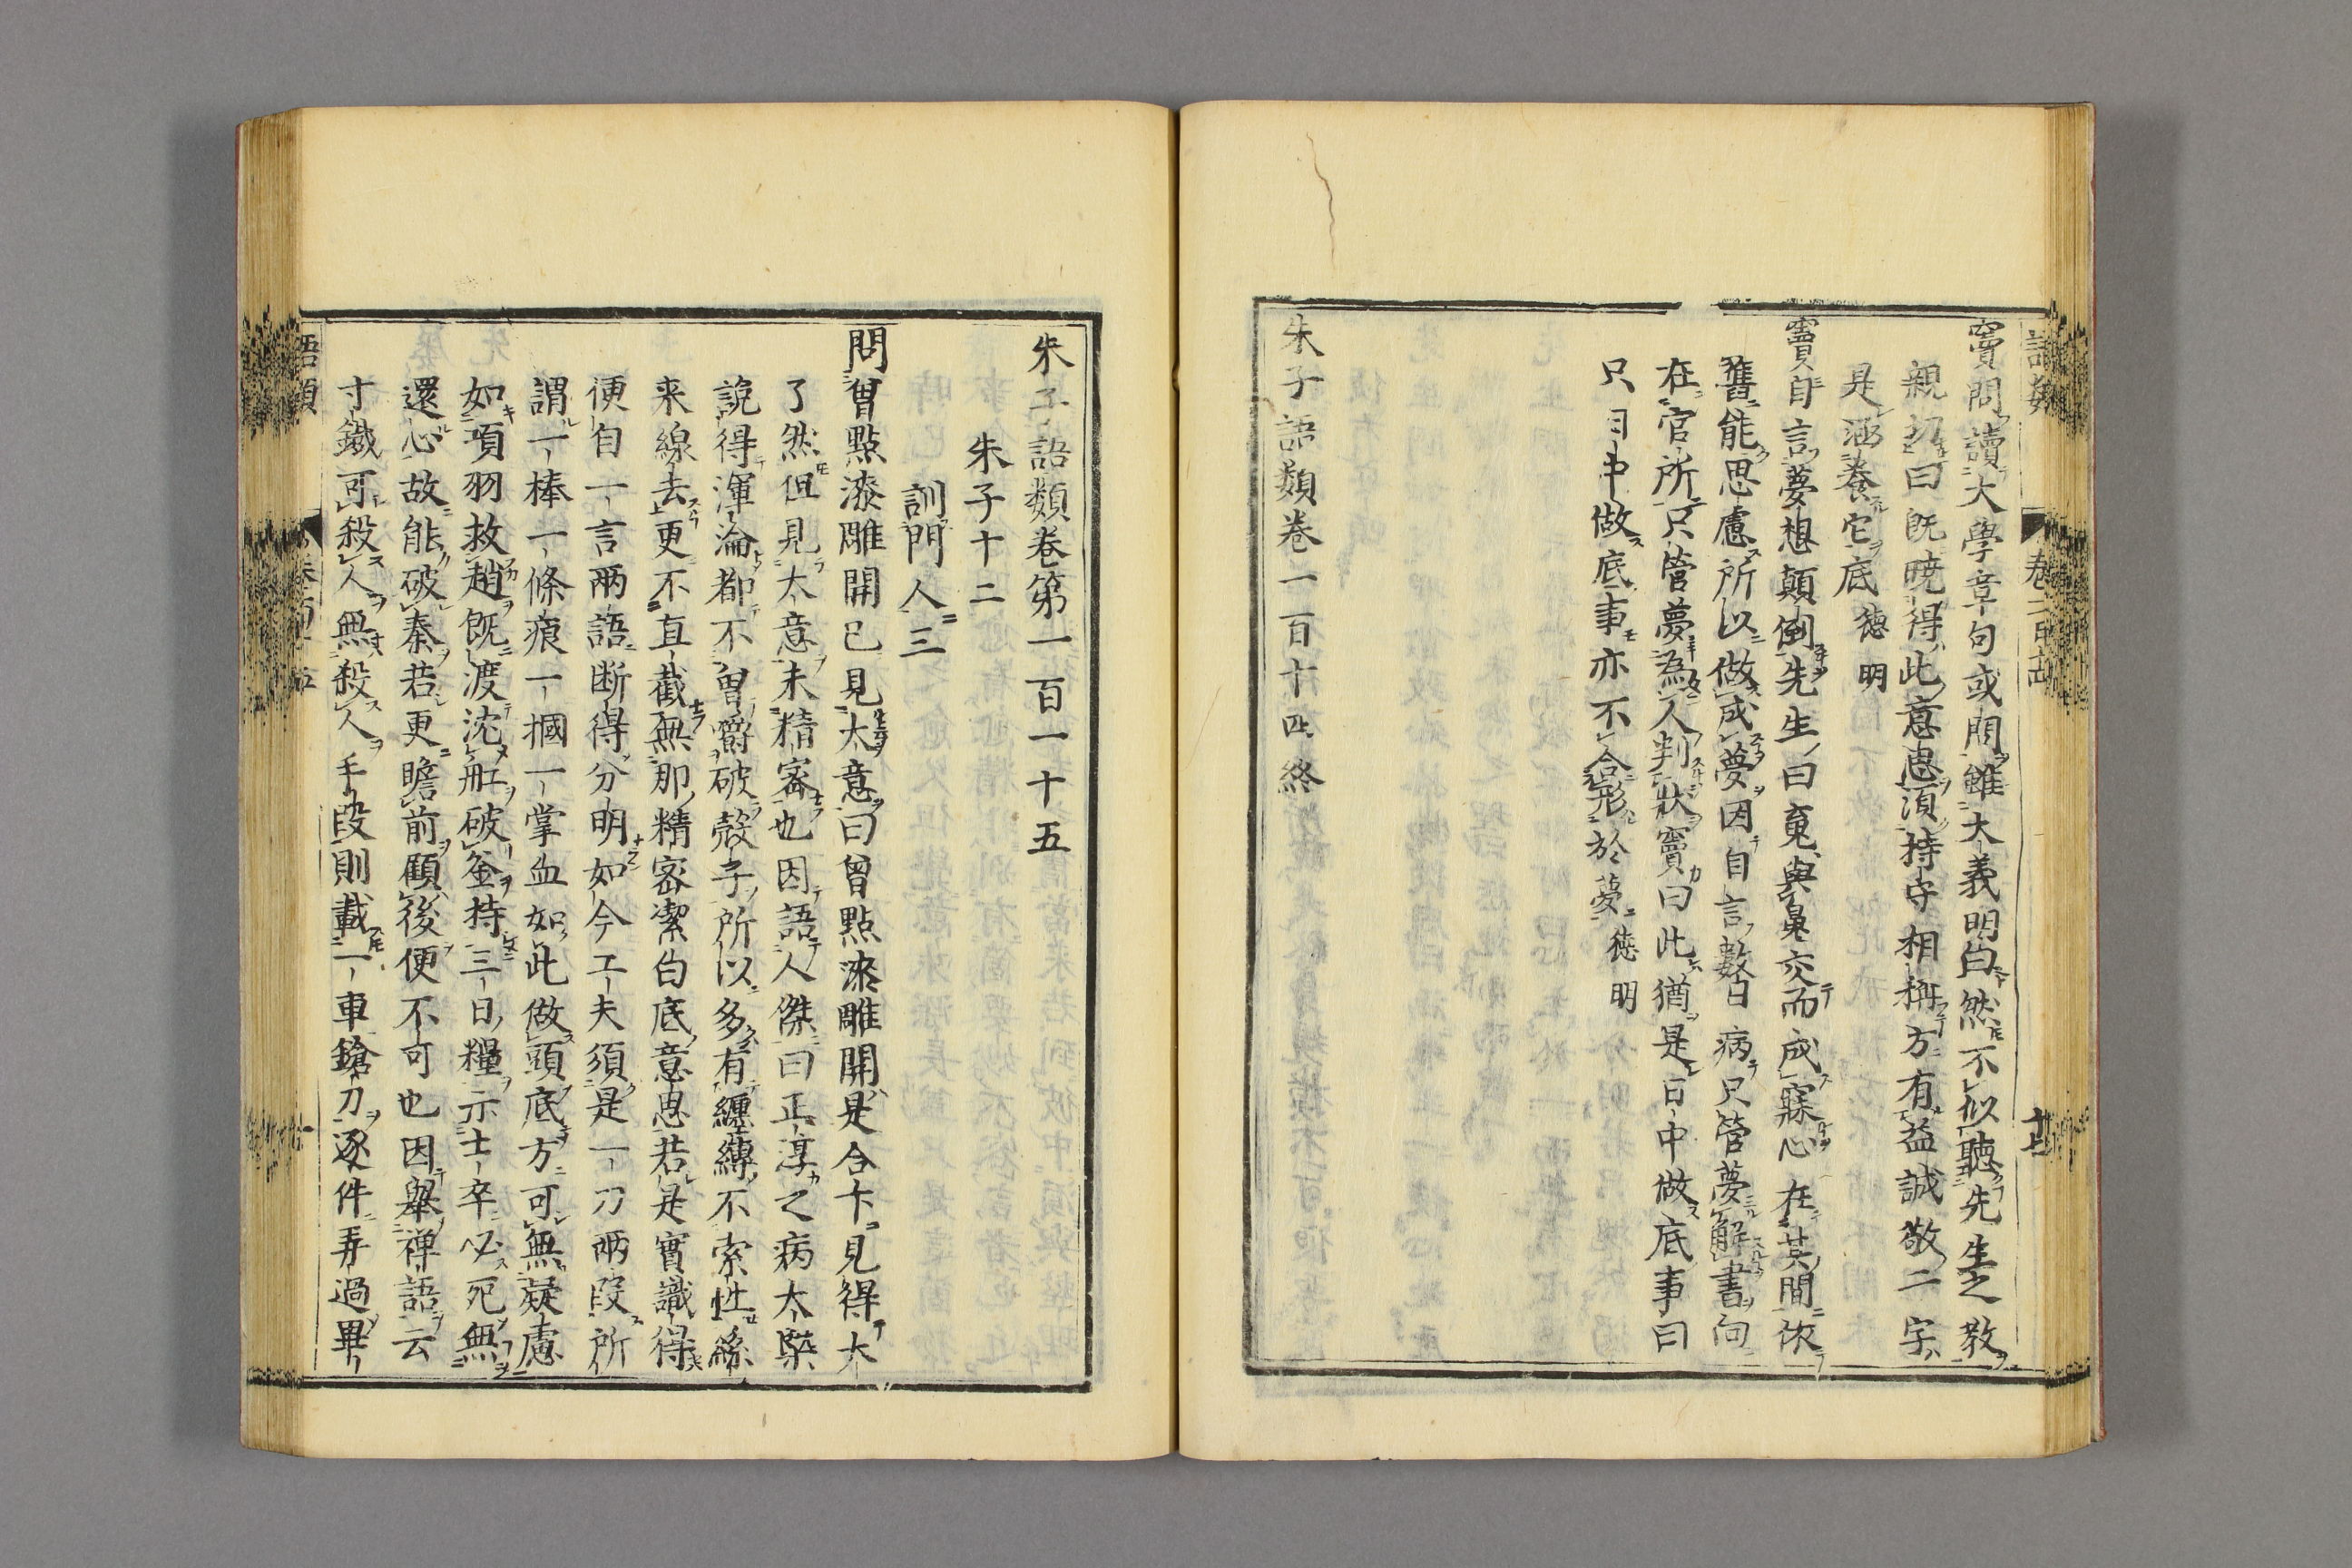 竇問讀大學章句或問雖大義明白然不似聽先生之教
親切曰既曉得此意思須持守相稱方有益誠敬二字
是涵養它底 德明
竇自言夢想顛倒先生曰䰟與䰟交而成寐心在其間依
舊能思慮所以做成夢因自言數日病只管夢解書向
在官所只管夢為人判狀竇曰此猶是日中做底事曰
只日中做底事亦不合形於夢 德明
朱子語類卷一百十四終
朱子語類卷第一百一十五
朱子十二
訓門人三
問曾點漆雕開已見大意曰曾點漆雕開是合下見得大
了然但見大意未精密也因語人傑曰正淳之病大槩
說得渾淪都不曾嚼破殼子所以多有纏縛不索性絲
来線去更不直截無那精密潔白底意思若是實識得
便自一言兩語断得分明如今工夫須是一刀兩段所
謂一棒一條痕一摑一掌血如此做頭底方可無疑慮
如項羽救趙既渡沈舡破釜持三日糧示士卒必死無
還心故能破秦若更瞻前顧後便不可也因舉禅語云
寸鐵可殺人無殺人手段則載一車鎗刀逐件弄過畢